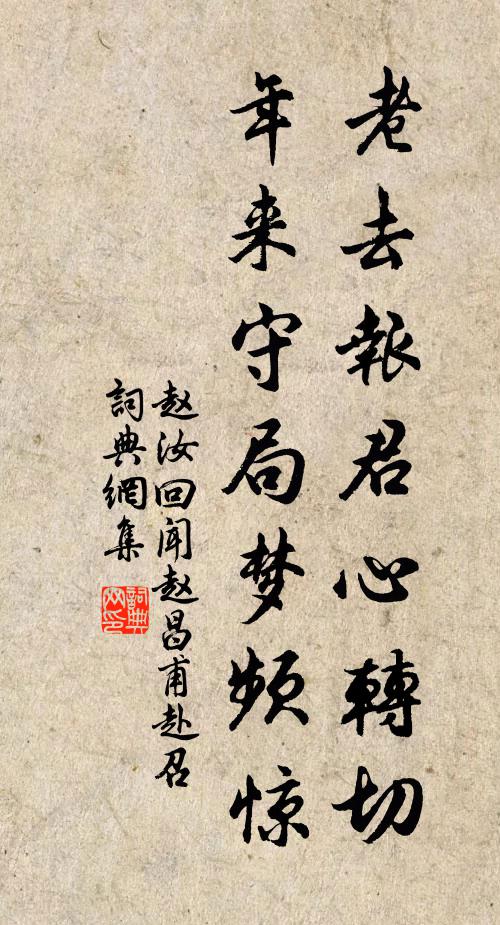 老去報君心轉切
年来守局梦频惊
赵汝回闻赵昌甫赴召
詞典網集
詞典网印